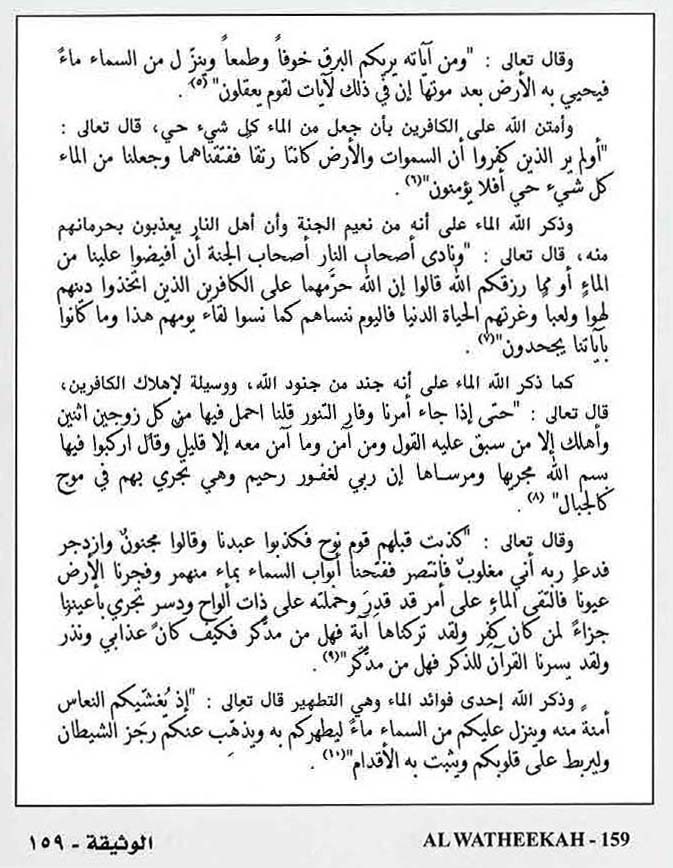 وقال تعالى : "ومن آياته يريكم البرق خوفاً وطمعاً وينزل من السماء ماءً
فيحيي به الأرض بعد موتها إن في ذلك لآيات لقوم يعقلون"(٥) .
وأمتن الله على الكافرين بأن جعل من الماء كل شيء حي، قال تعالى :
"أولم ير الذين كفروا أن السموات والأرض كانتا رتقاً ففتقناهما وجعلنا من الماء
كل شيء حي أفلا يؤمنون"(٦) .
وذكر الله الماء على أنه من نعيم الجنة وأن أهل النار يعذبون بحرمانهم
منه، قال تعالى : "ونادى أصحاب النار أصحاب الجنة أن أفيضوا علينا من
الماءِ أو مما رزقكم الله قالوا إن الله حرَّمهما على الكافرين الذين اتخذوا دينهم
لهوا ولعباً وغرتهم الحياة الدنيا فاليوم ننساهم كما نسوا لقاء يومهم هذا وما كانوا
بآياتنا يجحدون"(٧) .
كما ذكر الله الماء على أنه جند من جنود الله، ووسيلة لإهلاك الكافرين،
قال تعالى : "حتى إذا جاء أمرنا وفار التنور قلنا احمل فيها من كل زوجين اثنين
وأهلك إلا من سبق عليه القول ومن آمن وما آمن معه إلا قليلٌ وقال اركبوا فيها
بسم الله مجريها ومرساها إن ربي لغفور رحيم وهي تجري بهم في موج
كالجبال"(٨) .
وقال تعالى : "كذبت قبلهم قوم نوح فكذبوا عبدنا وقالوا مجنونٌ وازدجر
فدعا ربه أني مغلوبٌ فانتصر ففتحنا أبواب السماء بماء منهمر وفجرنا الأرض
عيوناً فالتقى الماء على أمر قد قدرَ وحملته على ذات ألواح ودسر تجري بأعيننا
جزاءً لمن كان كفِر ولقد تركناها آية فهل من مدَّكر فكيف كان عذابي ونذر
ولقد يسرنا القرآن للذكر فهل من مدَّكر"(٩) .
وذكر الله إحدى فوائد الماء وهي التطهير قال تعالى : "إذ يُغشِّيكم النعاس
أمنةً منه وينزل عليكم من السماء ماءً ليطهركم به ويذهِب عنكم رجَز الشيطان
وليربط على قلوبكم ويثبت به الأقدام"(١٠) .
الوثيقة - ١٥٩
AL WATHEEKAH - 159